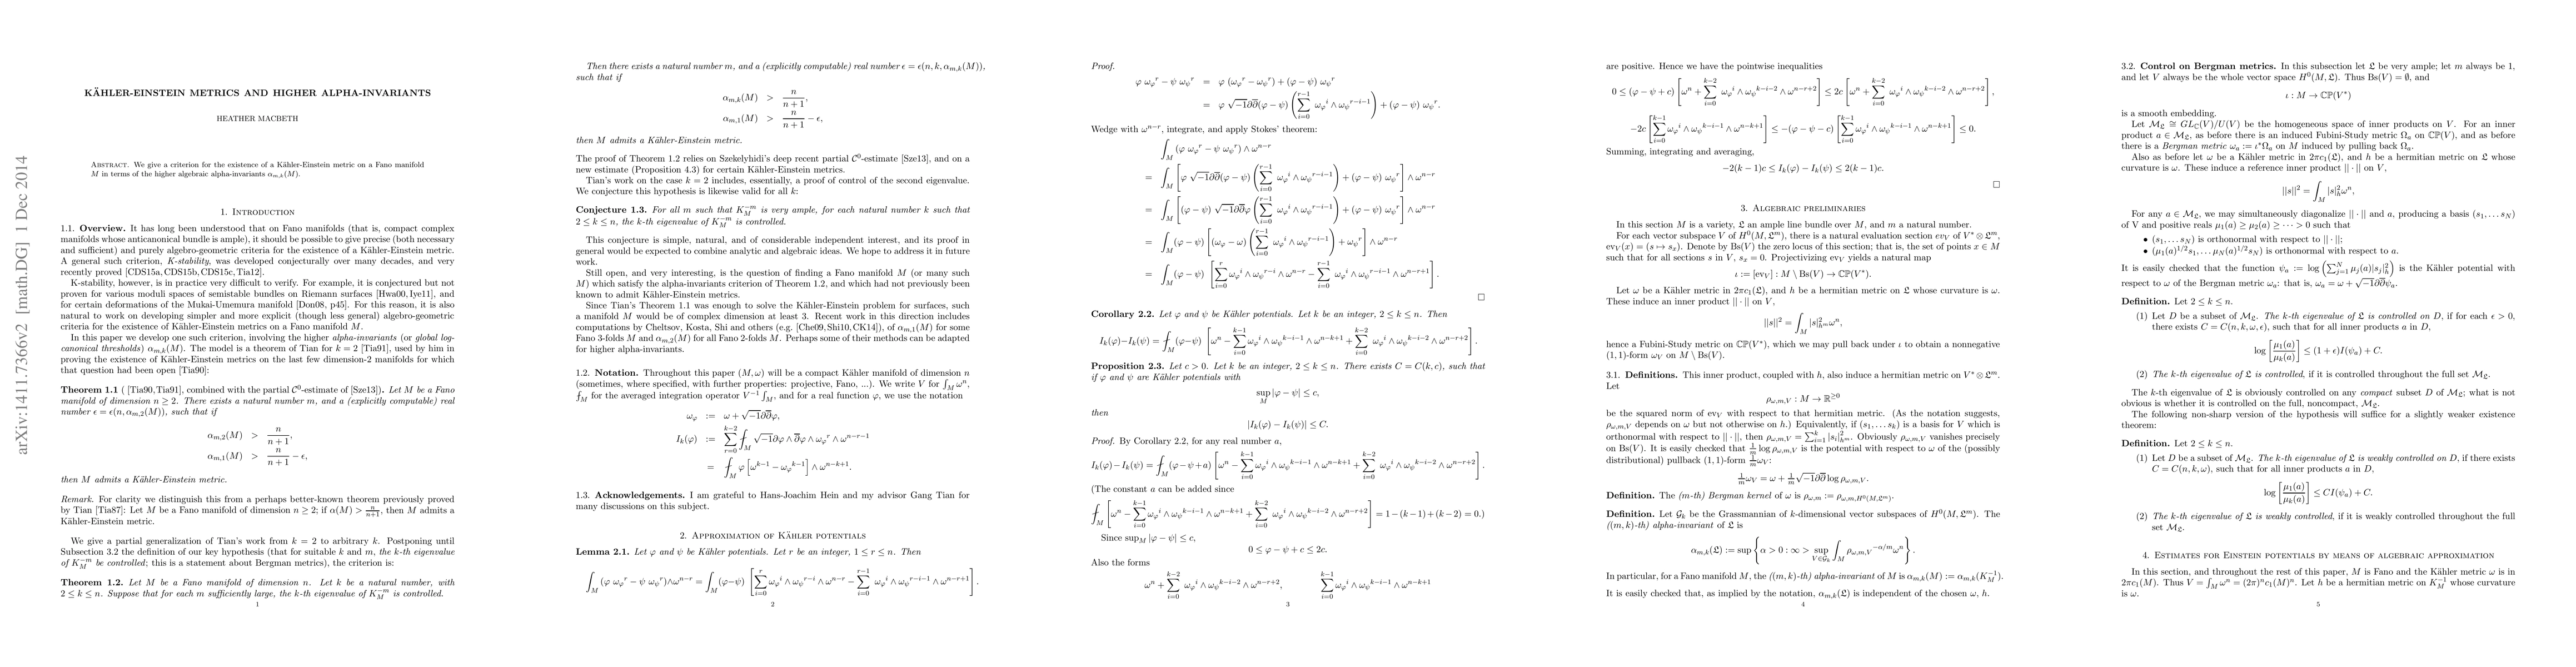 arXiv:1411.7366v2 [math.DG] 1 Dec 2014
KÄHLER-EINSTEIN METRICS AND HIGHER ALPHA-INVARIANTS
HEATHER MACBETH
Abstract. We give a criterion for the existence of a Kähler-Einstein metric on a Fano manifold
M in terms of the higher algebraic alpha-invariants α_{m,k}(M).
1. Introduction
1.1. Overview. It has long been understood that on Fano manifolds (that is, compact complex
manifolds whose anticanonical bundle is ample), it should be possible to give precise (both necessary
and sufficient) and purely algebro-geometric criteria for the existence of a Kähler-Einstein metric.
A general such criterion, K-stability, was developed conjecturally over many decades, and very
recently proved [CDS15a, CDS15b, CDS15c, Tia12].
K-stability, however, is in practice very difficult to verify. For example, it is conjectured but not
proven for various moduli spaces of semistable bundles on Riemann surfaces [Hwa00, Iye11], and
for certain deformations of the Mukai-Umemura manifold [Don08, p45]. For this reason, it is also
natural to work on developing simpler and more explicit (though less general) algebro-geometric
criteria for the existence of Kähler-Einstein metrics on a Fano manifold M.
In this paper we develop one such criterion, involving the higher alpha-invariants (or global log-
canonical thresholds) α_{m,k}(M). The model is a theorem of Tian for k = 2 [Tia91], used by him in
proving the existence of Kähler-Einstein metrics on the last few dimension-2 manifolds for which
that question had been open [Tia90]:
Theorem 1.1 ( [Tia90, Tia91], combined with the partial C^0-estimate of [Sze13]). Let M be a Fano
manifold of dimension n ≥ 2. There exists a natural number m, and a (explicitly computable) real
number ϵ = ϵ(n, α_{m,2}(M)), such that if
α_{m,2}(M) > n/(n+1),
α_{m,1}(M) > n/(n+1) − ϵ,
then M admits a Kähler-Einstein metric.
Remark. For clarity we distinguish this from a perhaps better-known theorem previously proved
by Tian [Tia87]: Let M be a Fano manifold of dimension n ≥ 2; if α(M) > n/(n+1), then M admits a
Kähler-Einstein metric.
We give a partial generalization of Tian's work from k = 2 to arbitrary k. Postponing until
Subsection 3.2 the definition of our key hypothesis (that for suitable k and m, the k-th eigenvalue
of K_M^{−m} be controlled; this is a statement about Bergman metrics), the criterion is:
Theorem 1.2. Let M be a Fano manifold of dimension n. Let k be a natural number, with
2 ≤ k ≤ n. Suppose that for each m sufficiently large, the k-th eigenvalue of K_M^{−m} is controlled.
1
Then there exists a natural number m, and a (explicitly computable) real number ϵ = ϵ(n, k, α_{m,k}(M)),
such that if
α_{m,k}(M) > n/(n+1),
α_{m,1}(M) > n/(n+1) − ϵ,
then M admits a Kähler-Einstein metric.
The proof of Theorem 1.2 relies on Szekelyhidi's deep recent partial C^0-estimate [Sze13], and on a
new estimate (Proposition 4.3) for certain Kähler-Einstein metrics.
Tian's work on the case k = 2 includes, essentially, a proof of control of the second eigenvalue.
We conjecture this hypothesis is likewise valid for all k:
Conjecture 1.3. For all m such that K_M^{−m} is very ample, for each natural number k such that
2 ≤ k ≤ n, the k-th eigenvalue of K_M^{−m} is controlled.
This conjecture is simple, natural, and of considerable independent interest, and its proof in
general would be expected to combine analytic and algebraic ideas. We hope to address it in future
work.
Still open, and very interesting, is the question of finding a Fano manifold M (or many such
M) which satisfy the alpha-invariants criterion of Theorem 1.2, and which had not previously been
known to admit Kähler-Einstein metrics.
Since Tian's Theorem 1.1 was enough to solve the Kähler-Einstein problem for surfaces, such
a manifold M would be of complex dimension at least 3. Recent work in this direction includes
computations by Cheltsov, Kosta, Shi and others (e.g. [Che09, Shi10, CK14]), of α_{m,1}(M) for some
Fano 3-folds M and α_{m,2}(M) for all Fano 2-folds M. Perhaps some of their methods can be adapted
for higher alpha-invariants.
1.2. Notation. Throughout this paper (M, ω) will be a compact Kähler manifold of dimension n
(sometimes, where specified, with further properties: projective, Fano, ...). We write V for ∫_M ω^n,
⨍_M for the averaged integration operator V^{−1} ∫_M, and for a real function φ, we use the notation
ω_φ := ω + √−1∂∂̄φ,
I_k(φ) := ∑_{r=0}^{k−2} ⨍_M √−1∂φ ∧ ∂̄φ ∧ ω_φ^r ∧ ω^{n−r−1}
= ⨍_M φ [ω^{k−1} − ω_φ^{k−1}] ∧ ω^{n−k+1}.
1.3. Acknowledgements. I am grateful to Hans-Joachim Hein and my advisor Gang Tian for
many discussions on this subject.
2. Approximation of Kähler potentials
Lemma 2.1. Let φ and ψ be Kähler potentials. Let r be an integer, 1 ≤ r ≤ n. Then
∫_M (φ ω_φ^r − ψ ω_ψ^r) ∧ ω^{n−r} = ∫_M (φ−ψ) [∑_{i=0}^{r} ω_φ^i ∧ ω_ψ^{r−i} ∧ ω^{n−r} − ∑_{i=0}^{r−1} ω_φ^i ∧ ω_ψ^{r−i−1} ∧ ω^{n−r+1}].
2
Proof.
φ ω_φ^r − ψ ω_ψ^r = φ (ω_φ^r − ω_ψ^r) + (φ − ψ) ω_ψ^r
= φ √−1∂∂̄(φ − ψ) (∑_{i=0}^{r−1} ω_φ^i ∧ ω_ψ^{r−i−1}) + (φ − ψ) ω_ψ^r.
Wedge with ω^{n−r}, integrate, and apply Stokes' theorem:
∫_M (φ ω_φ^r − ψ ω_ψ^r) ∧ ω^{n−r}
= ∫_M [φ √−1∂∂̄(φ − ψ) (∑_{i=0}^{r−1} ω_φ^i ∧ ω_ψ^{r−i−1}) + (φ − ψ) ω_ψ^r] ∧ ω^{n−r}
= ∫_M [(φ − ψ) √−1∂∂̄φ (∑_{i=0}^{r−1} ω_φ^i ∧ ω_ψ^{r−i−1}) + (φ − ψ) ω_ψ^r] ∧ ω^{n−r}
= ∫_M (φ − ψ) [(ω_φ − ω) (∑_{i=0}^{r−1} ω_φ^i ∧ ω_ψ^{r−i−1}) + ω_ψ^r] ∧ ω^{n−r}
= ∫_M (φ − ψ) [∑_{i=0}^{r} ω_φ^i ∧ ω_ψ^{r−i} ∧ ω^{n−r} − ∑_{i=0}^{r−1} ω_φ^i ∧ ω_ψ^{r−i−1} ∧ ω^{n−r+1}].
□
Corollary 2.2. Let φ and ψ be Kähler potentials. Let k be an integer, 2 ≤ k ≤ n. Then
I_k(φ)−I_k(ψ) = ⨍_M (φ−ψ) [ω^n − ∑_{i=0}^{k−1} ω_φ^i ∧ ω_ψ^{k−i−1} ∧ ω^{n−k+1} + ∑_{i=0}^{k−2} ω_φ^i ∧ ω_ψ^{k−i−2} ∧ ω^{n−k+2}].
Proposition 2.3. Let c > 0. Let k be an integer, 2 ≤ k ≤ n. There exists C = C(k, c), such that
if φ and ψ are Kähler potentials with
sup_M |φ − ψ| ≤ c,
then
|I_k(φ) − I_k(ψ)| ≤ C.
Proof. By Corollary 2.2, for any real number a,
I_k(φ)−I_k(ψ) = ⨍_M (φ−ψ+a) [ω^n − ∑_{i=0}^{k−1} ω_φ^i ∧ ω_ψ^{k−i−1} ∧ ω^{n−k+1} + ∑_{i=0}^{k−2} ω_φ^i ∧ ω_ψ^{k−i−2} ∧ ω^{n−k+2}].
(The constant a can be added since
⨍_M [ω^n − ∑_{i=0}^{k−1} ω_φ^i ∧ ω_ψ^{k−i−1} ∧ ω^{n−k+1} + ∑_{i=0}^{k−2} ω_φ^i ∧ ω_ψ^{k−i−2} ∧ ω^{n−k+2}] = 1−(k−1)+(k−2) = 0.)
Since sup_M |φ − ψ| ≤ c,
0 ≤ φ − ψ + c ≤ 2c.
Also the forms
ω^n + ∑_{i=0}^{k−2} ω_φ^i ∧ ω_ψ^{k−i−2} ∧ ω^{n−r+2}, ∑_{i=0}^{k−1} ω_φ^i ∧ ω_ψ^{k−i−1} ∧ ω^{n−k+1}
3
are positive. Hence we have the pointwise inequalities
0 ≤ (φ − ψ + c) [ω^n + ∑_{i=0}^{k−2} ω_φ^i ∧ ω_ψ^{k−i−2} ∧ ω^{n−r+2}] ≤ 2c [ω^n + ∑_{i=0}^{k−2} ω_φ^i ∧ ω_ψ^{k−i−2} ∧ ω^{n−r+2}],
−2c [∑_{i=0}^{k−1} ω_φ^i ∧ ω_ψ^{k−i−1} ∧ ω^{n−k+1}] ≤ −(φ − ψ − c) [∑_{i=0}^{k−1} ω_φ^i ∧ ω_ψ^{k−i−1} ∧ ω^{n−k+1}] ≤ 0.
Summing, integrating and averaging,
−2(k − 1)c ≤ I_k(φ) − I_k(ψ) ≤ 2(k − 1)c.
□
3. Algebraic preliminaries
In this section M is a variety, 𝔏 an ample line bundle over M, and m a natural number.
For each vector subspace V of H^0(M, 𝔏^m), there is a natural evaluation section ev_V of V* ⊗ 𝔏^m,
ev_V(x) = (s ↦ s_x). Denote by Bs(V) the zero locus of this section; that is, the set of points x ∈ M
such that for all sections s in V, s_x = 0. Projectivizing ev_V yields a natural map
ι := [ev_V] : M \ Bs(V) → ℂℙ(V*).
Let ω be a Kähler metric in 2πc_1(𝔏), and h be a hermitian metric on 𝔏 whose curvature is ω.
These induce an inner product || · || on V,
||s||^2 = ∫_M |s|^2_{h^m} ω^n,
hence a Fubini-Study metric on ℂℙ(V*), which we may pull back under ι to obtain a nonnegative
(1, 1)-form ω_V on M \ Bs(V).
3.1. Definitions. This inner product, coupled with h, also induce a hermitian metric on V* ⊗ 𝔏^m.
Let
ρ_{ω,m,V} : M → ℝ^{≥0}
be the squared norm of ev_V with respect to that hermitian metric. (As the notation suggests,
ρ_{ω,m,V} depends on ω but not otherwise on h.) Equivalently, if (s_1, . . . s_k) is a basis for V which is
orthonormal with respect to || · ||, then ρ_{ω,m,V} = ∑_{i=1}^{k} |s_i|^2_{h^m}. Obviously ρ_{ω,m,V} vanishes precisely
on Bs(V). It is easily checked that 1/m log ρ_{ω,m,V} is the potential with respect to ω of the (possibly
distributional) pullback (1, 1)-form 1/m ω_V:
1/m ω_V = ω + 1/m √−1∂∂̄ log ρ_{ω,m,V}.
Definition. The (m-th) Bergman kernel of ω is ρ_{ω,m} := ρ_{ω,m,H^0(M,𝔏^m)}.
Definition. Let 𝒢_k be the Grassmannian of k-dimensional vector subspaces of H^0(M, 𝔏^m). The
((m, k)-th) alpha-invariant of 𝔏 is
α_{m,k}(𝔏) := sup {α > 0 : ∞ > sup_{V∈𝒢_k} ∫_M ρ_{ω,m,V}^{−α/m} ω^n}.
In particular, for a Fano manifold M, the ((m, k)-th) alpha-invariant of M is α_{m,k}(M) := α_{m,k}(K_M^{−1}).
It is easily checked that, as implied by the notation, α_{m,k}(𝔏) is independent of the chosen ω, h.
4
3.2. Control on Bergman metrics. In this subsection let 𝔏 be very ample; let m always be 1,
and let V always be the whole vector space H^0(M, 𝔏). Thus Bs(V) = ∅, and
ι : M → ℂℙ(V*)
is a smooth embedding.
Let ℳ_𝔏 ≅ GL_ℂ(V)/U(V) be the homogeneous space of inner products on V. For an inner
product a ∈ ℳ_𝔏, as before there is an induced Fubini-Study metric Ω_a on ℂℙ(V), and as before
there is a Bergman metric ω_a := ι*Ω_a on M induced by pulling back Ω_a.
Also as before let ω be a Kähler metric in 2πc_1(𝔏), and h be a hermitian metric on 𝔏 whose
curvature is ω. These induce a reference inner product || · || on V,
||s||^2 = ∫_M |s|^2_h ω^n,
For any a ∈ ℳ_𝔏, we may simultaneously diagonalize || · || and a, producing a basis (s_1, . . . s_N)
of V and positive reals μ_1(a) ≥ μ_2(a) ≥ · · · > 0 such that
• (s_1, . . . s_N) is orthonormal with respect to || · ||;
• (μ_1(a)^{1/2}s_1, . . . μ_N(a)^{1/2}s_N) is orthonormal with respect to a.
It is easily checked that the function ψ_a := log (∑_{j=1}^{N} μ_j(a)|s_j|^2_h) is the Kähler potential with
respect to ω of the Bergman metric ω_a: that is, ω_a = ω + √−1∂∂̄ψ_a.
Definition. Let 2 ≤ k ≤ n.
(1) Let D be a subset of ℳ_𝔏. The k-th eigenvalue of 𝔏 is controlled on D, if for each ϵ > 0,
there exists C = C(k, ω, ϵ), such that for all inner products a in D,
log [μ_1(a)/μ_k(a)] ≤ (1 + ϵ)I(ψ_a) + C.
(2) The k-th eigenvalue of 𝔏 is controlled, if it is controlled throughout the full set ℳ_𝔏.
The k-th eigenvalue of 𝔏 is obviously controlled on any compact subset D of ℳ_𝔏; what is not
obvious is whether it is controlled on the full, noncompact, ℳ_𝔏.
The following non-sharp version of the hypothesis will suffice for a slightly weaker existence
theorem:
Definition. Let 2 ≤ k ≤ n.
(1) Let D be a subset of ℳ_𝔏. The k-th eigenvalue of 𝔏 is weakly controlled on D, if there exists
C = C(n, k, ω), such that for all inner products a in D,
log [μ_1(a)/μ_k(a)] ≤ CI(ψ_a) + C.
(2) The k-th eigenvalue of 𝔏 is weakly controlled, if it is weakly controlled throughout the full
set ℳ_𝔏.
4. Estimates for Einstein potentials by means of algebraic approximation
In this section, and throughout the rest of this paper, M is Fano and the Kähler metric ω is in
2πc_1(M). Thus V = ∫_M ω^n = (2π)^n c_1(M)^n. Let h be a hermitian metric on K_M^{−1} whose curvature
is ω.
5